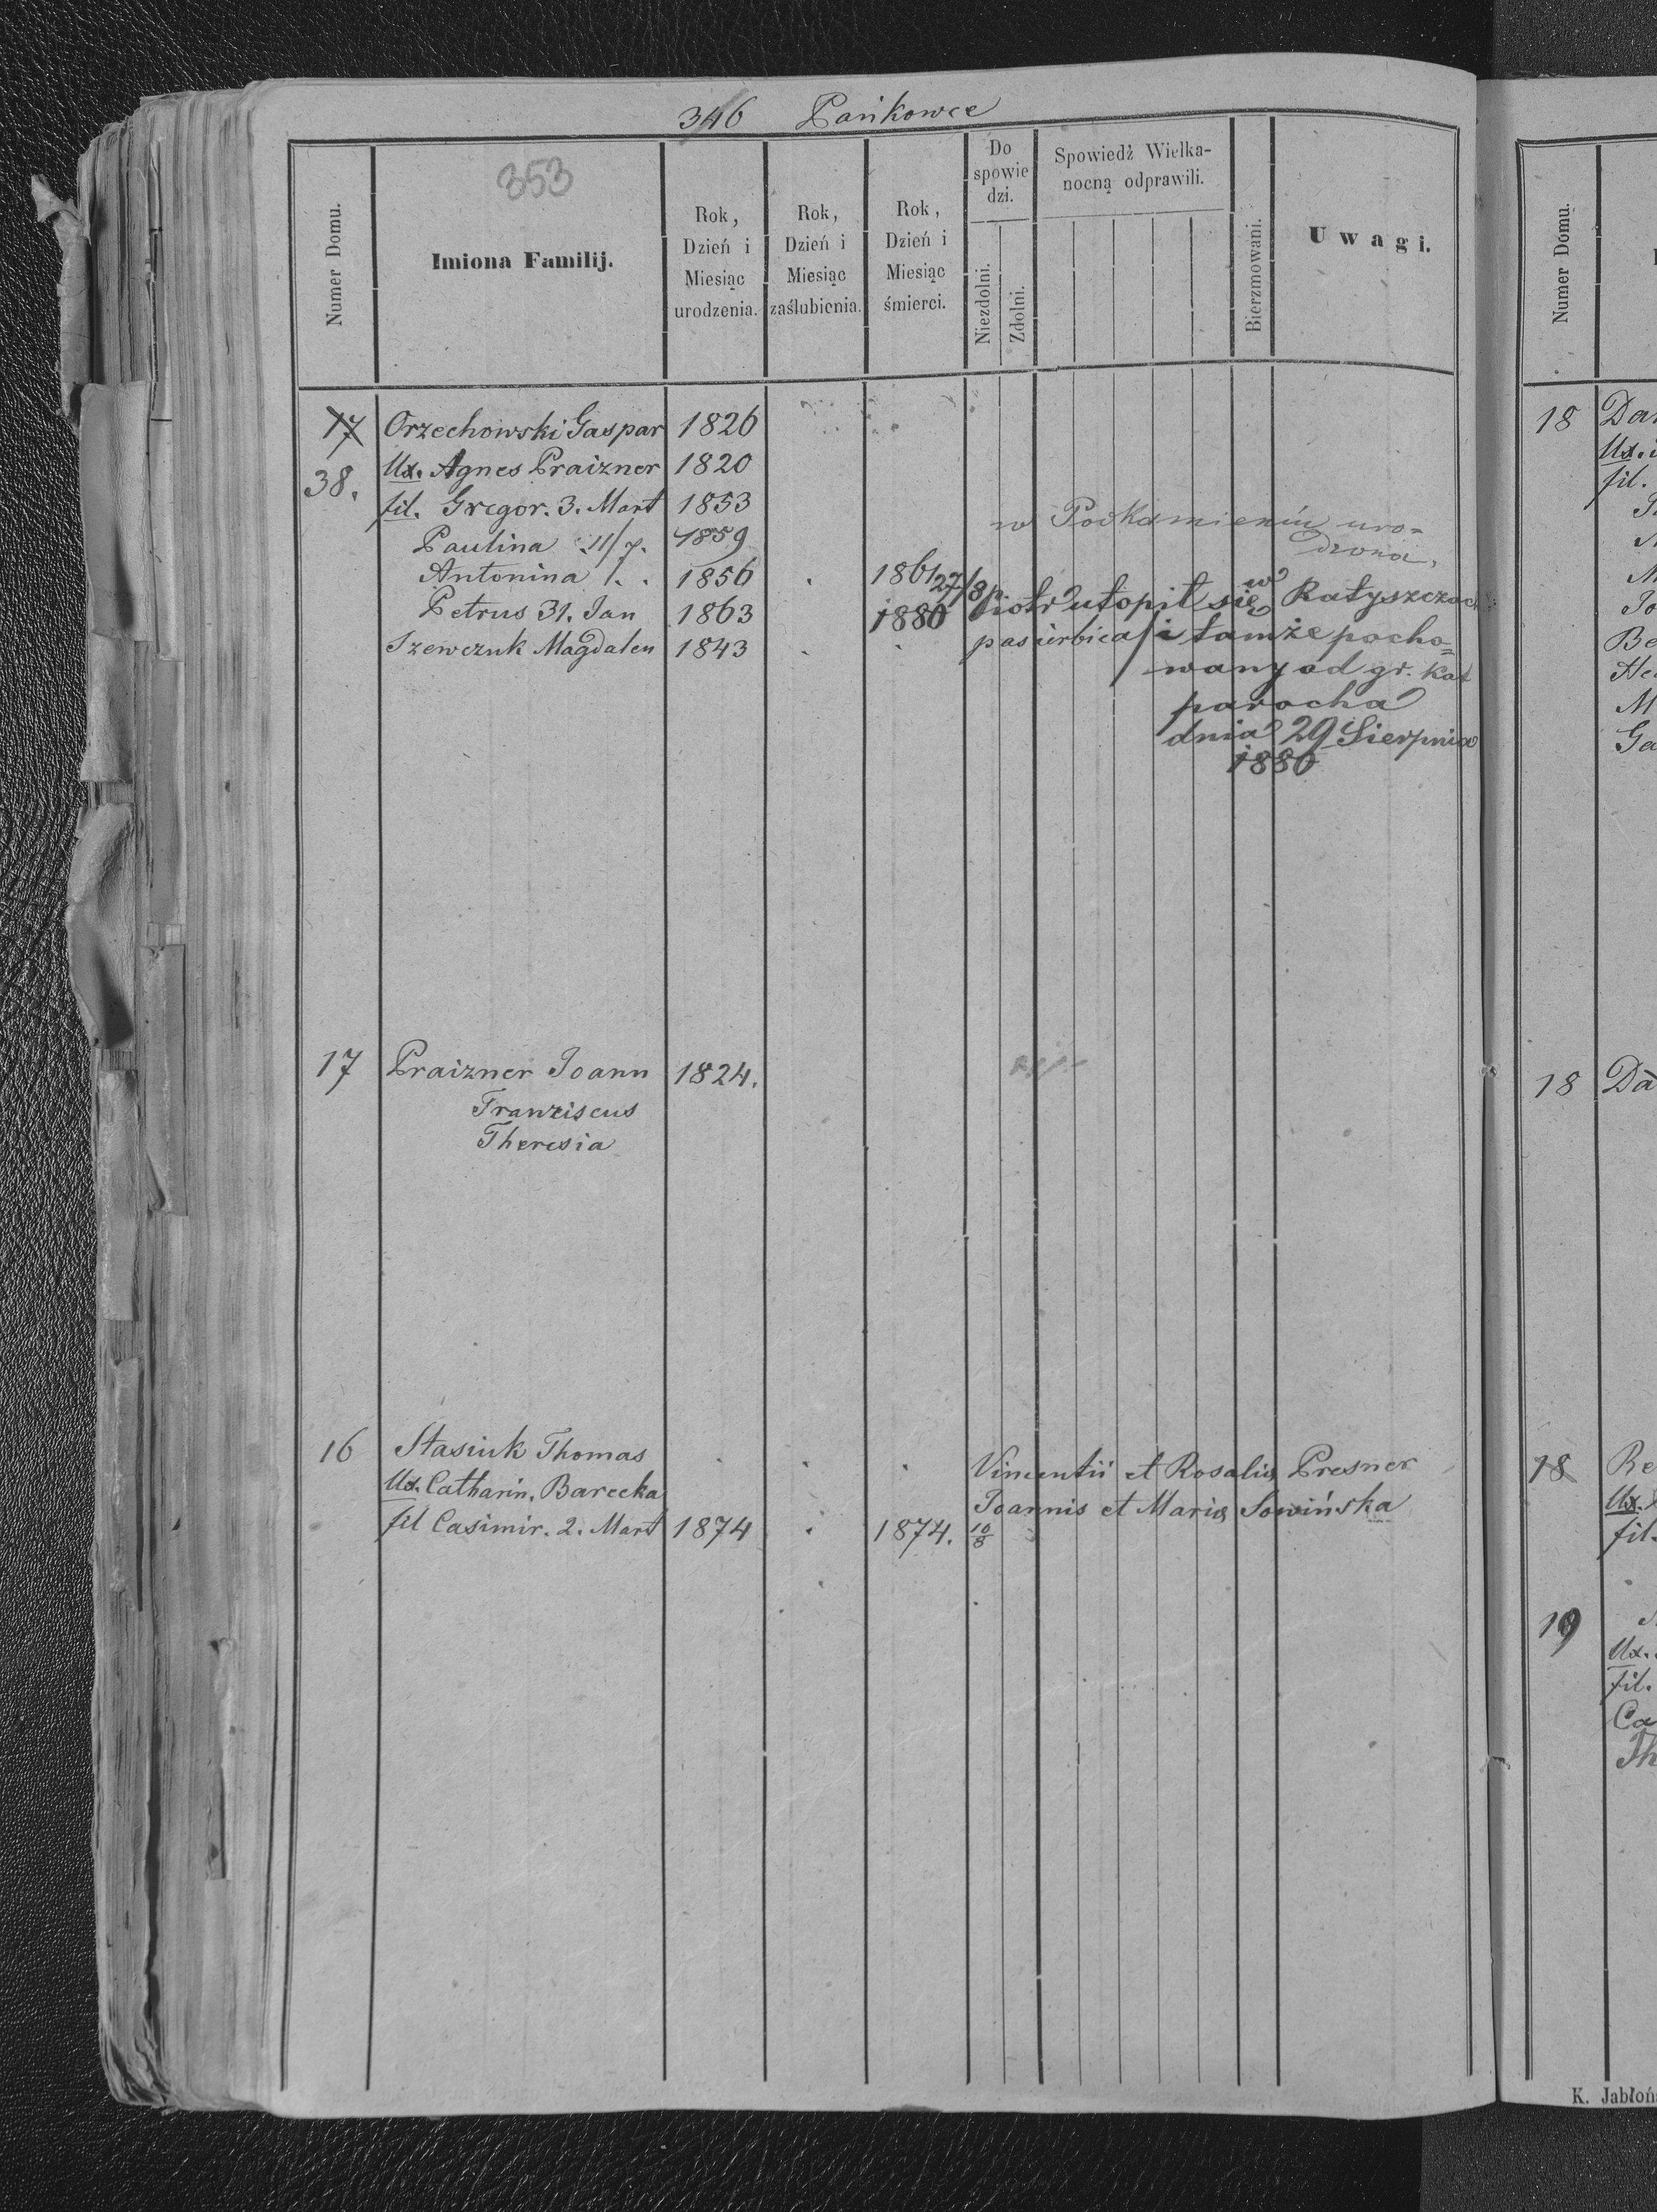 346 Pańkowce
353
Numer Domu.
Imiona Familij.
Rok, Dzień i Miesiąc urodzenia.
Rok, Dzień i Miesiąc zaślubienia.
Rok, Dzień i Miesiąc śmierci.
Do spowie dzi.
Niezdolni.
Zdolni.
Spowiedź Wielka- nocną odprawili.
Bierzmowani.
Uwagi.
17 Orzechowski Gaspar 1826
38. Ux. Agnes Praizner 1820
fil. Gregor. 3. Mart 1853
w Podkamieniu uro-
dzona,
Paulina 11/7. 1859
Antonina 1856 1861
Petrus 31. Jan 1863 1880 27/8 Piotr utopił się w Ratyszczach
Szewczuk Magdalen 1843 pasierbica / i tamże pocho=
wany od gr. kat
parocha
dnia 29 Sierpnia
1880
17 Praizner Joann 1824.
Franziscus
Theresia
16 Stasiuk Thomas Vincentii et Rosalia Presner
Ux. Catharin. Barecka Joannis et Maria Sowińska
fil Casimir. 2. Mart 1874 1874. 10/8
Numer Domu.
18
Ux.
fil.
Be
M
Ga
18
18 Re
Ux.
fil.
19
Ux.
fil.
Ca
Th
K. Jabłoń